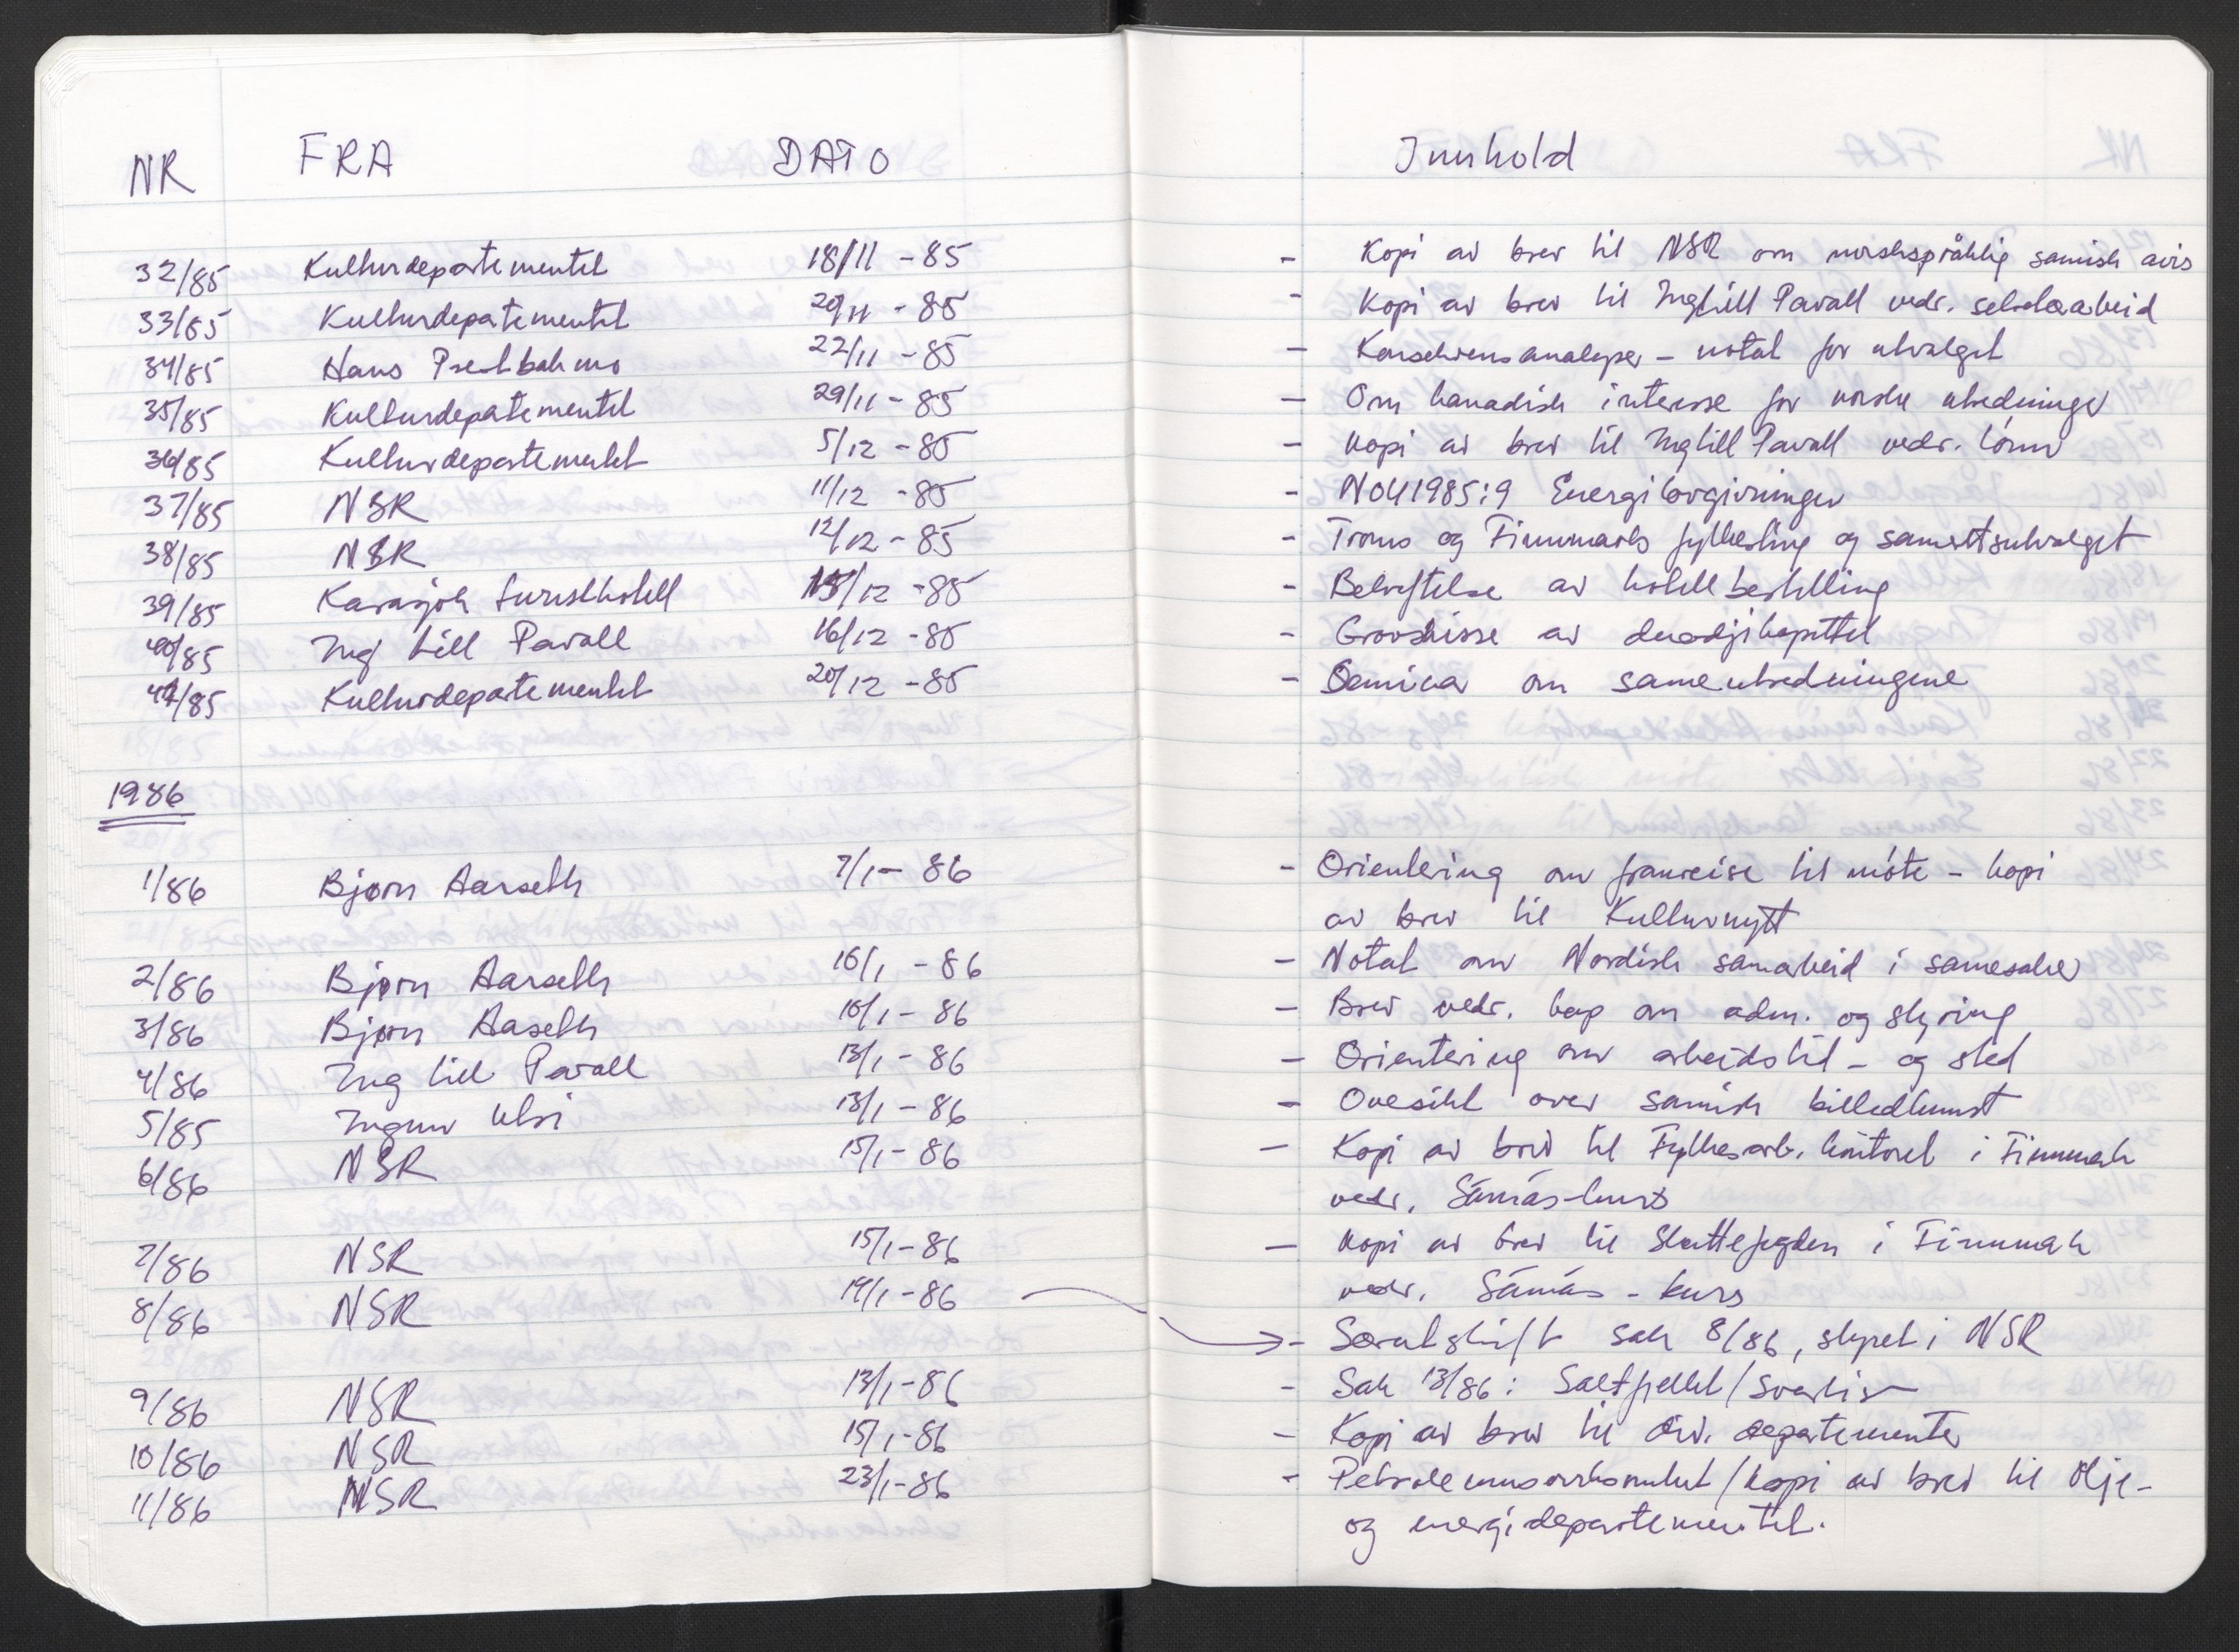 NR FRA DATO Innhold
32/85 Kulturdepartementet 18/11 - 85 - Kopi av brev til NSR om norskspråklig samisk avis
33/85 Kulturdepatementet 20/11 - 85 - Kopi av brev til Inghill Pavall vedr. sekretærarbeid
34/85 Hans Prestbakmo 22/11 - 85 - Konsekvensanalyser - notat for utvalget
35/85 Kulturdepatementet 29/11 - 85 - Om kanadisk interesse for norske utredninger
36/85 Kulturdepartementet 5/12 - 85 - Kopi av brev til Inghill Pavall vedr. lønn
37/85 NSR 11/12 - 85 - NOU 1985:9 Energilovgivningen
38/85 NSR 12/12 - 85 - Troms og Finnmarks fylkesting og samerettsutvalget
39/85 Karasjok turisthotell 15/12 - 85 - Bekreftelse av hotellbestilling
40/85 Ing Lill Pavall 16/12 - 85 - Grovskisse av duodjikapittel
41/85 Kulturdepartementet 20/12 - 85 - Seminar om sameutredningene
1986
1/86 Bjørn Aarseth 7/1 - 86 - Orientering om framreise til møte - kopi
av brev til Kulturnytt
2/86 Bjørn Aarseth 10/1 - 86 - Notat om Nordisk samarbeid i samesaker
3/86 Bjørn Aaseth 10/1 - 86 - Brev vedr. kap om adm. og styring
4/86 Ing Lill Pavall 13/1 - 86 - Orientering om arbeidstid - og sted
5/85 Ingunn Utsi 13/1 - 86 - Ovesikt over samisk billedkunst
6/86 NSR 15/1 - 86 - Kopi av brev til Fylkesarb. kontoret i Finnmark
vedr. Sámás-kurs
7/86 NSR 15/1 - 86 - Kopi av brev til Skattefogden i Finnmark
vedr. Sámás - kurs
8/86 NSR 14/1 - 86 - Særutskrift sak 8/86, styret i NSR
9/86 NSR 13/1 - 86 - Sak 13/86: Saltfjellet/Svartisen
10/86 NSR 15/1 - 86 - Kopi av brev til div. departementer
11/86 NSR 23/1 - 86 - Petroleumsvirksomhet/kopi av brev til Olje-
og energidepartementet.